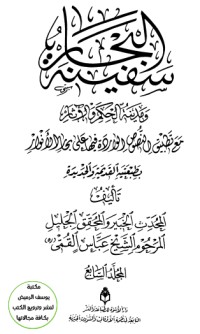 سفينة البحار
ومدينة الحكم والآثار
مع تطبيق النصوص الواردة فيها على بحار الأنوار
بطبعتيه القديمة والجديدة
تأليف
المحدث الخبير والمحقق الجليل
المرحوم الشيخ عباس القمي
المجلد السابع
مكتبة
يوسف الرميض
لنشر وترويج الكتب
بكافة مجالاتها